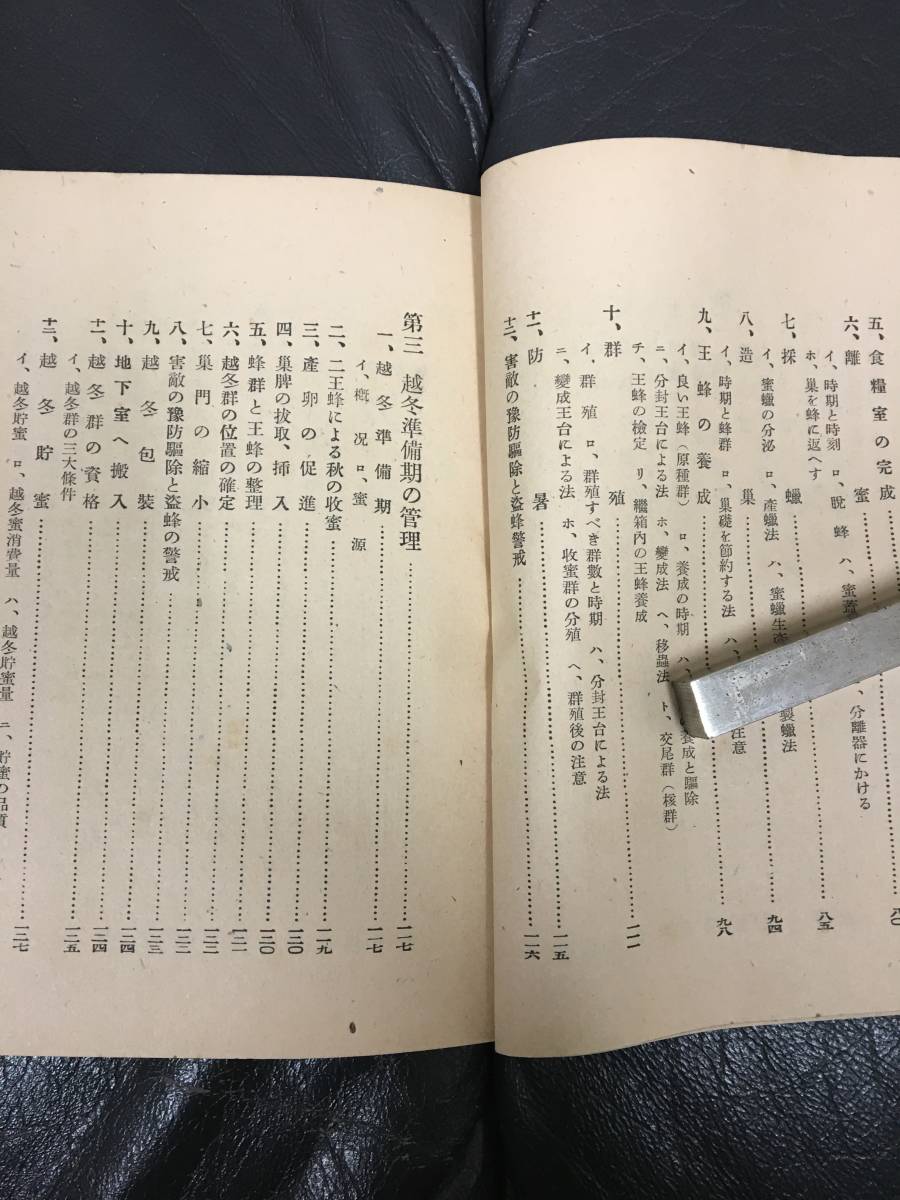 五、食糧室の完成……八〇
六、離蜜……八五
イ、時期と時刻 ロ、脫蜂 ハ、蜜蓋 、分離器にかける
ホ、巢を蜂に返へす
七、採蠟……九四
イ、蜜蠟の分泌 ロ、產蠟法 ハ、蜜蠟生產 製蠟法
八、造巢……九八
イ、時期と蜂群 ロ、巢礎を節約する法 ハ、 注意
九、王蜂の養成
イ、良い王蜂(原種群) ロ、養成の時期 ハ、 養成と驅除
ニ、分封王台による法 ホ、變成法 ヘ、移蟲法 ト、交尾群(核群)
チ、王蜂の檢定 リ、繼箱內の王蜂養成
十、群殖……一一一
イ、群殖 ロ、群殖すべき群數と時期 ハ、分封王台による法
ニ、變成王台による法 ホ、收蜜群の分殖 ヘ、群殖後の注意
十一、防暑……一一五
十二、害敵の豫防驅除と盜蜂警戒……一一六
第三 越冬準備期の管理……一一七
一、越冬準備期……一一七
イ、概況 ロ、蜜源
二、二王蜂による秋の收蜜……一一九
三、產卵の促進……一二〇
四、巢脾の拔取、挿入……一二〇
五、蜂群と王蜂の整理……一二〇
六、越冬群の位置の確定……一二一
七、巢門の縮小……一二二
八、害敵の豫防驅除と盜蜂の警戒……一二二
九、越冬包裝……一二三
十、地下室へ搬入……一二四
十一、越冬群の資格……一二四
イ、越冬群の三大條件
十二、越冬貯蜜……一二五
イ、越冬貯蜜 ロ、越冬蜜消費量 ハ、越冬貯蜜量 ニ、貯蜜の品質
……一二七